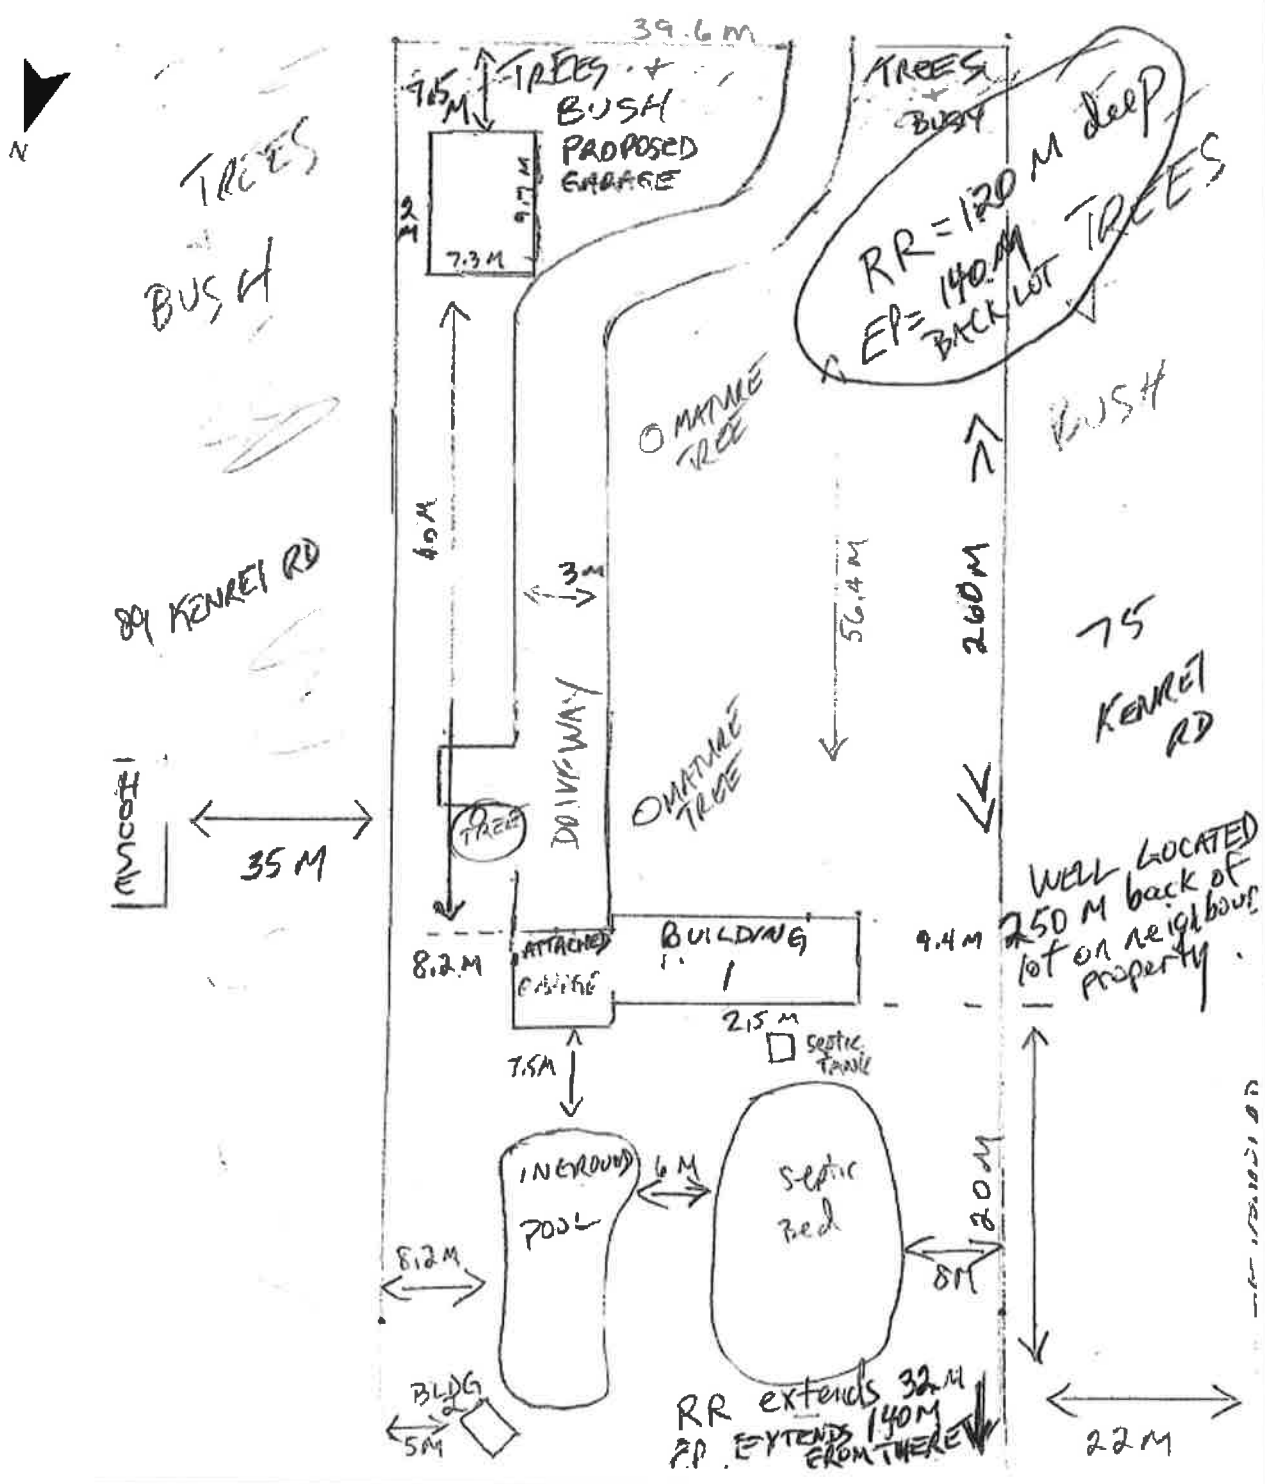 39.6 M
N
7.5
M
TREES +
BUSH
PROPOSED
GARAGE
9.7 M
2
M
7.3 M
TREES
+
BUSH
RR = 120 M deep
EP = 140 M
BACK LOT
TREES
BUSH
TREES
+
BUSH
MATURE
TREE
60M
3 M
56.4 M
260M
89 KENREI RD
75
KENREI
RD
DRIVEWAY
MATURE
TREE
TREE
HOUSE
35 M
WELL LOCATED
250 M back of
lot on neighbour
property.
8.2 M
ATTACHED
GARAGE
BUILDING
1
9.4 M
7.5M
2.5 M
Septic
TANK
INGROUND
POOL
6 M
Septic
Bed
8M
120M
8.2M
BLDG
2
5M
RR extends 32 M
EP. EXTENDS 140M
FROM THERE
22 M